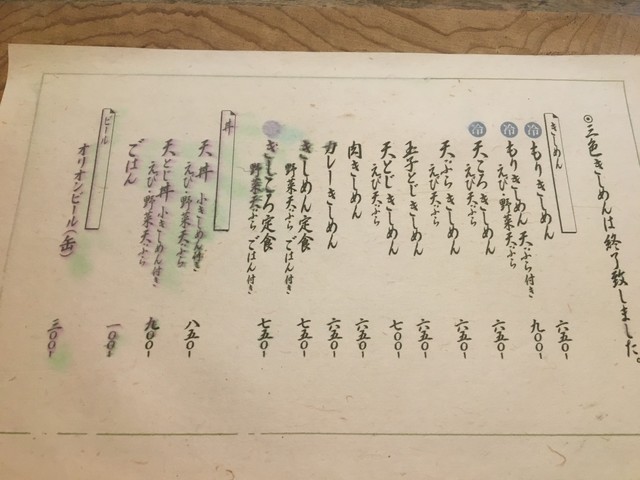 ◎三色きしめんは終了致しました。
きしめん
冷 もりきしめん 六五〇-
冷 もりきしめん 天ぷら付き 九〇〇-
えび・野菜天ぷら
冷 天ころきしめん 六五〇-
えび天ぷら
天ぷらきしめん 六五〇-
えび天ぷら
玉子とじきしめん 六五〇-
天とじきしめん 七〇〇-
えび天ぷら
肉きしめん 六五〇-
カレーきしめん 六五〇-
きしめん定食 七五〇-
野菜天ぷら ごはん付き
冷 きしころ定食 七五〇-
野菜天ぷら ごはん付き
丼
天丼 小きしめん付き 八五〇-
えび・野菜天ぷら
天とじ丼 小きしめん付き 九〇〇-
えび・野菜天ぷら
ごはん 一〇〇-
ビール
オリオンビール(缶) 三〇〇-